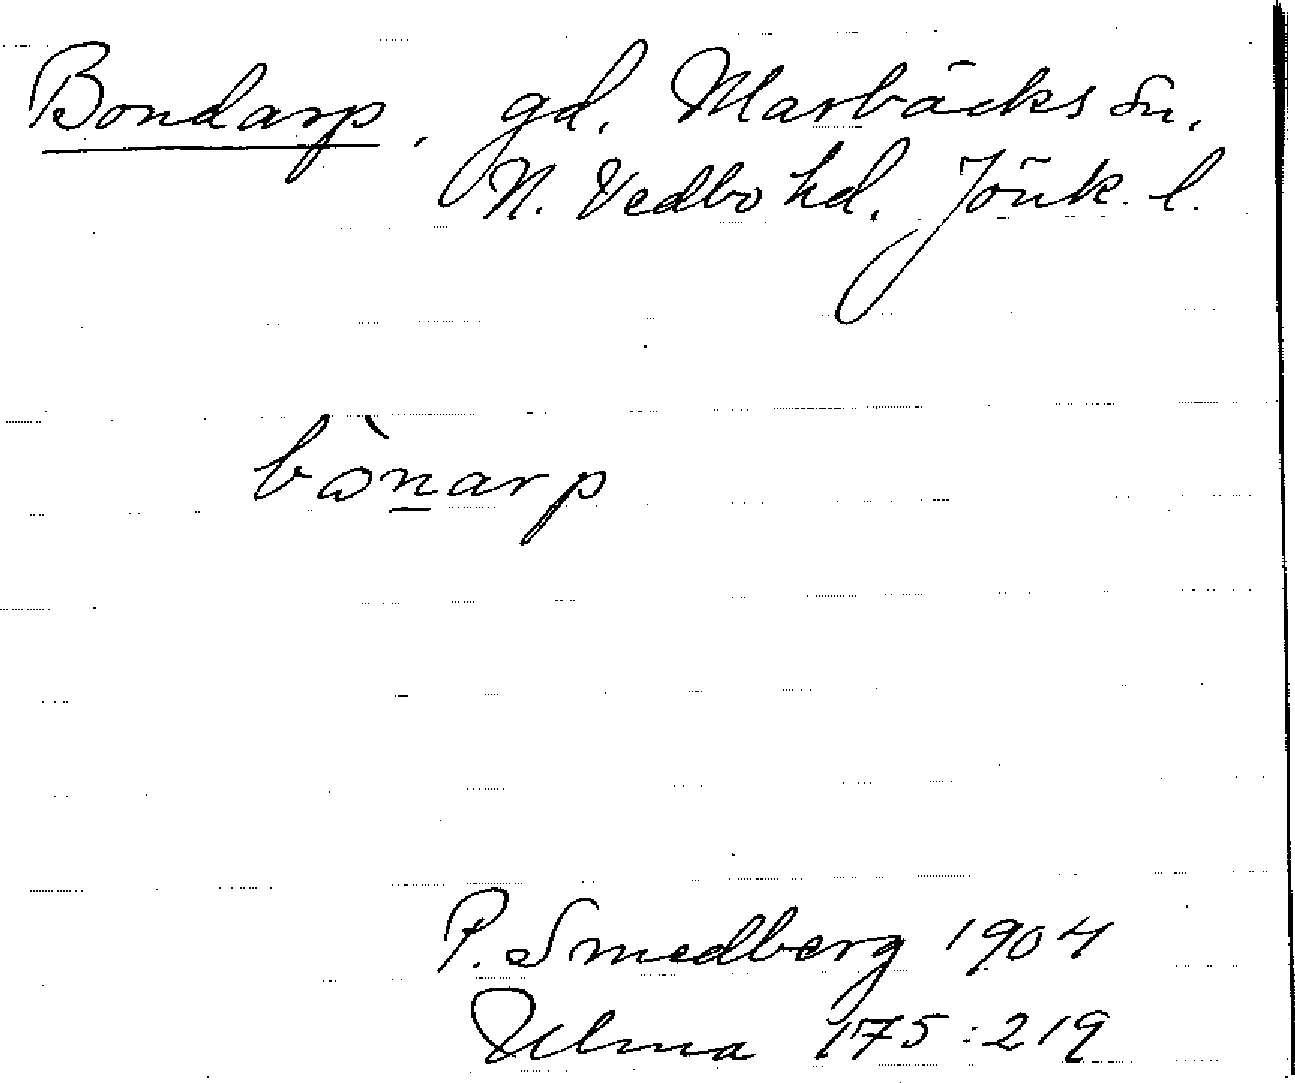 Bondarp, gd, Marbäcks sn,
N. Vedbo hd, Jönk. l.
bɷ̀n̲arp
P. Smedberg 1904
Ulma 175:219